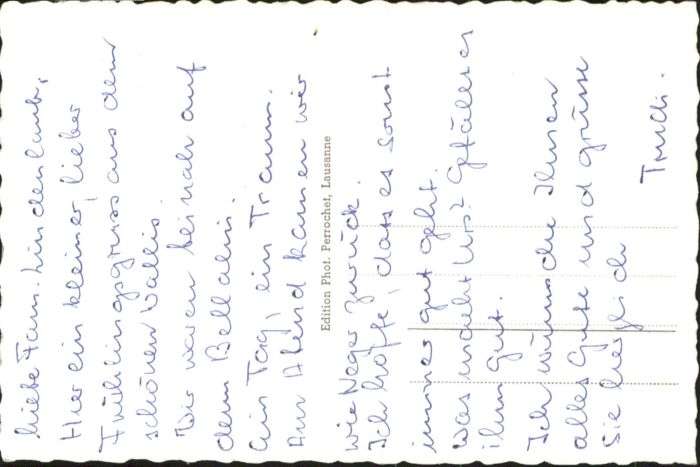 Liebe Fam. Lindenlaub,
Hier ein kleiner, lieber
Frühlingsgruss aus dem
schönen Wallis.
Wir waren beinah auf
dem Bellalui.
Ein Tag, ein Traum.
Am Abend kamen wir
wie Neger zurück.
Ich hoffe, dass es sonst
immer gut geht.
Was macht Urs? Gefällt es
ihm gut.
Ich wünsche Ihnen
alles Gute und grüsse
Sie herzlich
Trudi.
Edition Phot. Perrochet, Lausanne